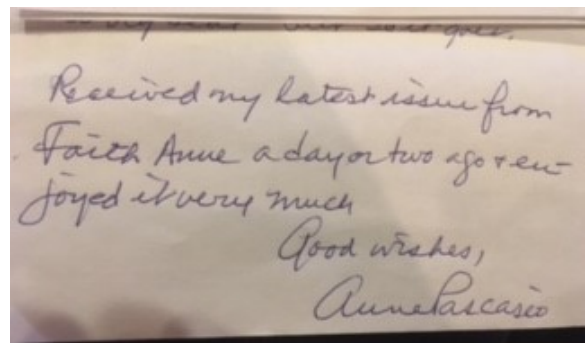 but so it goes.
Received my latest issue from
Faith Anne a day or two ago + en-
joyed it very much
Good wishes,
Anne Pascasio